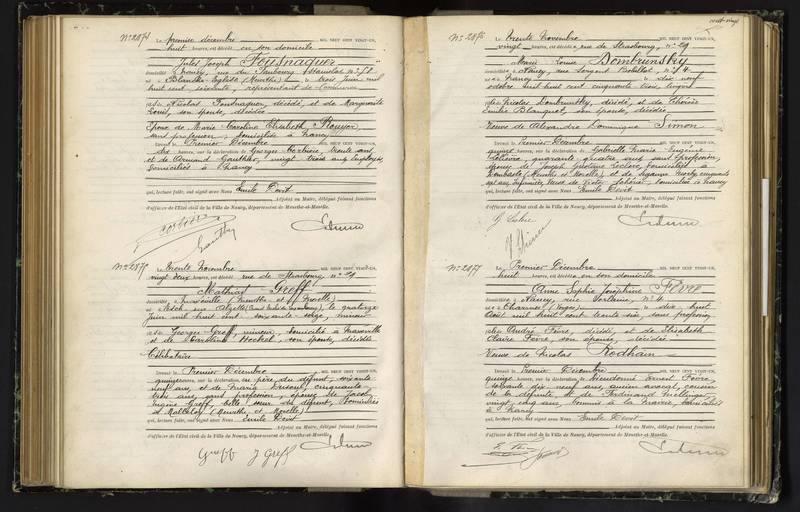 No 2874 Le premier décembre MIL NEUF CENT VINGT-UN,
huit heures, est décédé en son domicile
Jules Joseph
domicilié à Nancy, rue du Faubourg Stanislas no
né à Blanche Eglise (Meurthe) le trois Juin mil
huit cent soixante, représentant de commerce
fils de Nicolas décédé, et de Marguerite
son épouse, décédée
Epoux de Marie Caroline Elisabeth
sans profession, domiciliée à Nancy
Dressé le Premier Décembre MIL NEUF CENT VINGT-UN,
dix heures, sur la déclaration de Georges trente ans
et de Armand Gauthier, vingt trois ans employés
domiciliés à Nancy
qui, lecture faite, ont signé avec Nous Emile Devit
Adjoint au Maire, délégué faisant fonctions
d'officier de l'Etat civil de la Ville de Nancy, département de Meurthe-et-Moselle.
No 2875 Le trente Novembre MIL NEUF CENT VINGT-UN,
vingt deux heures, est décédé rue de Strasbourg no 29
Mathias Greff
domicilié à (Meurthe et Moselle)
né à Esch sur Alzette le quatorze
Juin mil huit cent soixante seize, mineur
fils de Georges Greff, mineur, domicilié à
et de Caroline Hochel, son épouse, décédée
Célibataire
Dressé le Premier Décembre MIL NEUF CENT VINGT-UN,
quinze heures, sur la déclaration du père du défunt, soixante
neuf ans, et de Maria cinquante
trois ans, sans profession, épouse de Jacob
Greff, belle soeur du défunt, domiciliés
à (Meurthe et Moselle)
qui, lecture faite, ont signé avec Nous Emile Devit
Adjoint au Maire, délégué faisant fonctions
d'officier de l'Etat civil de la Ville de Nancy, département de Meurthe-et-Moselle.
Greff J Greff
No 2876 Le trente Novembre MIL NEUF CENT VINGT-UN,
vingt heures, est décédée rue de Strasbourg, no 29
Marie Louise Dombrunsthy
domiciliée à Nancy, rue Sergent Blandan, no 4
née à Nancy le dix neuf
octobre mil huit cent cinquante trois, lingère
fille de Nicolas Dombrunsthy, décédé, et de Thérèse
Emilie Blanquet, son épouse, décédée
Veuve de Alexandre Dominique Simon
Dressé le Premier Décembre MIL NEUF CENT VINGT-UN,
quinze heures, sur la déclaration de Gabrielle Marie Eugénie
quarante quatre ans sans profession,
épouse de Justinien Leclerc,
Dombasle (Meurthe et Moselle) et de Suzanne cinquante
sept ans, infirmière, veuve de Victor domiciliée à Nancy
qui, lecture faite, ont signé avec Nous Emile Devit
Adjoint au Maire, délégué faisant fonctions
d'officier de l'Etat civil de la Ville de Nancy, département de Meurthe-et-Moselle.
No 2877 Le Premier Décembre MIL NEUF CENT VINGT-UN,
huit heures, est décédée en son domicile
Anne Sophie Joséphine Fèvre
domiciliée à Nancy, rue Verlaine, no 4
née à Charmes (Vosges) le dix huit
Août mil huit cent trente six, sans profession
fille de André Fèvre, décédé, et de Elisabeth
Claire Fèvre, son épouse, décédée
Veuve de Nicolas Rodhain
Dressé le Premier Décembre MIL NEUF CENT VINGT-UN,
quinze heures, sur la déclaration de Dieudonné Ernest Fèvre,
soixante dix neuf ans, ancien avocat, cousin
de la défunte, et de Ferdinand
vingt cinq ans, commis à la mairie, domiciliés
à Nancy
qui, lecture faite, ont signé avec Nous Emile Devit
Adjoint au Maire, délégué faisant fonctions
d'officier de l'Etat civil de la Ville de Nancy, département de Meurthe-et-Moselle.